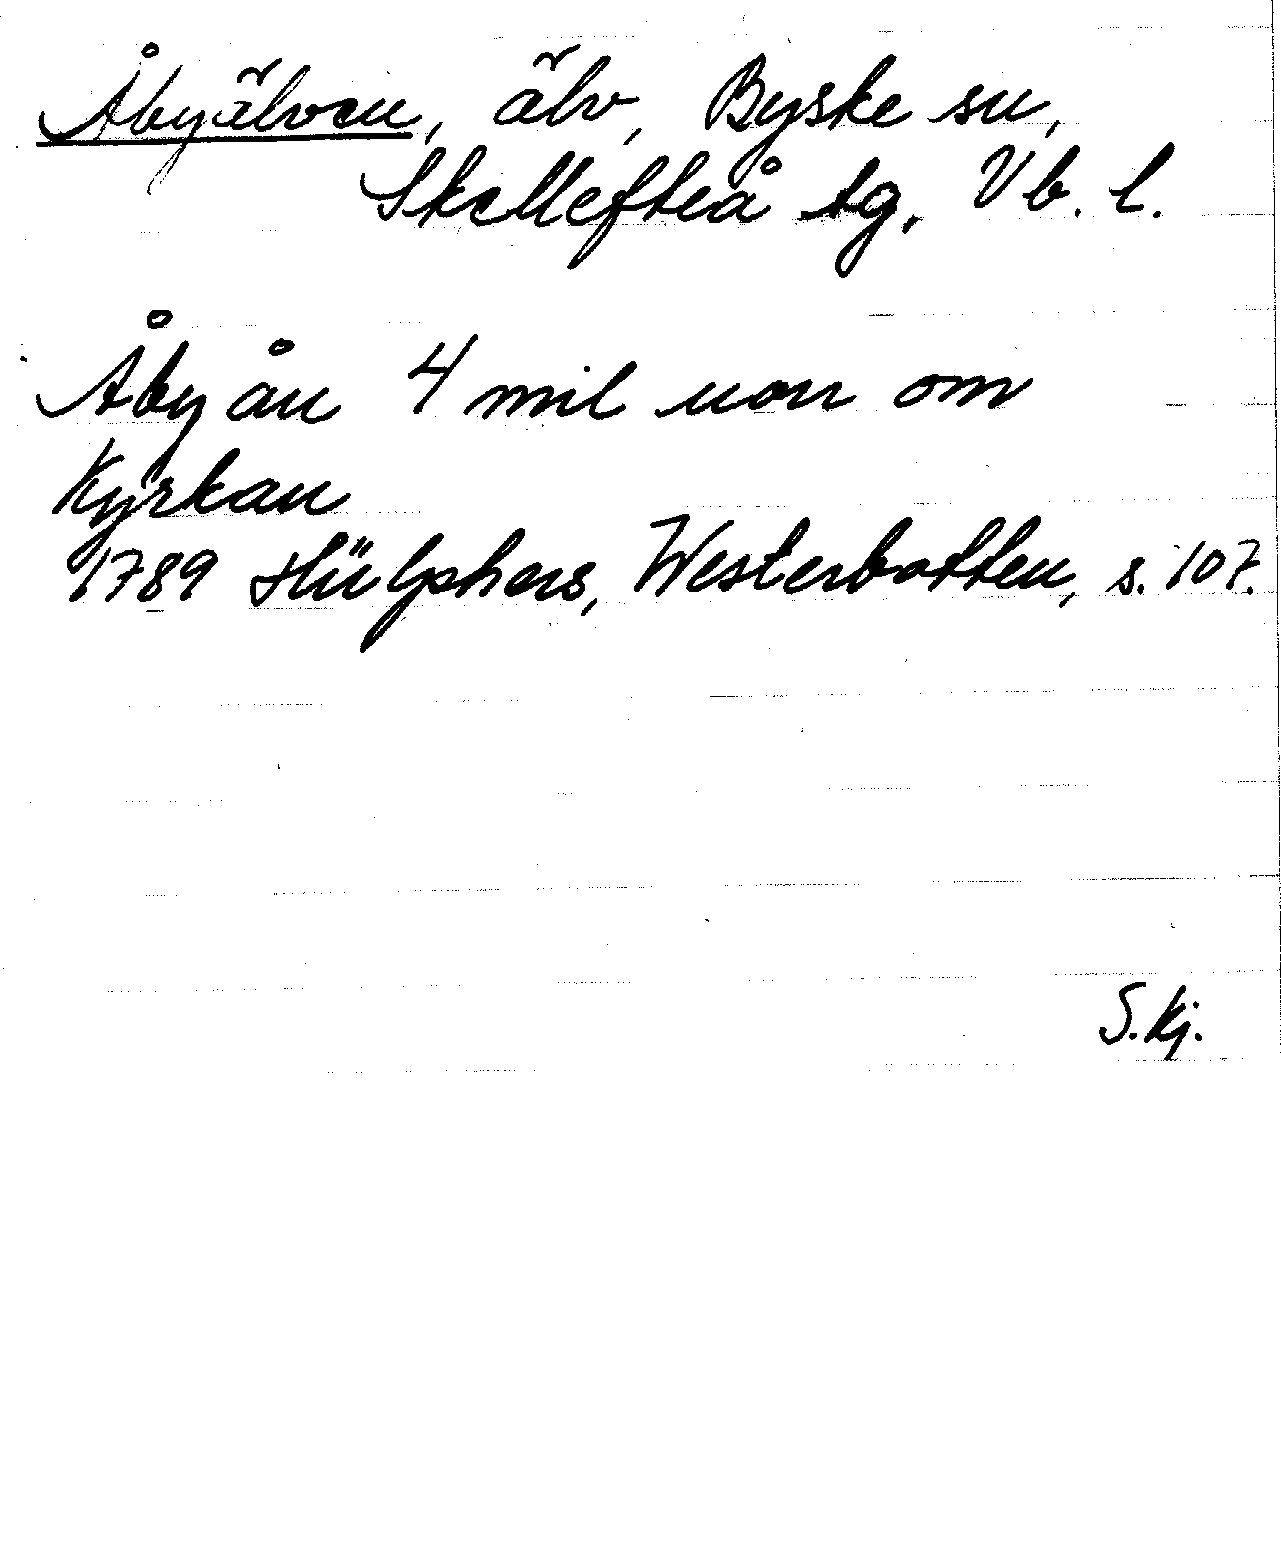 Åbyälven, älv, Byske sn,
Skellefteå tg, Vb. l.
Åby ån 4 mil norr om
Kyrkan
1789 Hülphers, Westerbotten, s. 107.
S. Kj.